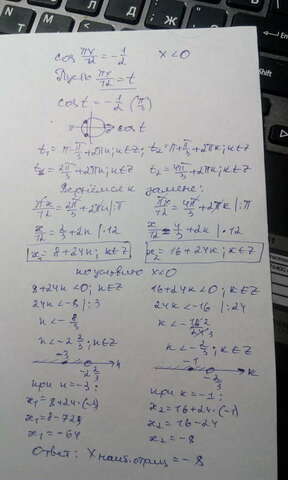 cos πx/12 = -1/2    x<0
Пусть πx/12 = t
cos t = -1/2 (π/3)
cos t
t₁ = π - π/3 + 2πn; n∈Z; t₂ = π + π/3 + 2πk; k∈Z
t₁ = 2π/3 + 2πn; n∈Z    t₂ = 4π/3 + 2πk; k∈Z
Вернёмся к замене:
πx/12 = 2π/3 + 2πn |:π    πx/12 = 4π/3 + 2πk |:π
x/12 = 2/3 + 2n |·12    x/12 = 4/3 + 2k |·12
x₁ = 8+24n; n∈Z    x₂ = 16+24k; k∈Z
по условию x<0
8+24n<0; n∈Z    16+24k<0; k∈Z
24n<-8 |:3    24k<-16 |:24
n<-8/3    k<-16 2/24 3
n<-2 2/3; n∈Z    k<-2/3; k∈Z
-3    -2 2/3    n    -1    -2/3    k
при n=-3:    при k=-1:
x₁=8+24·(-3)    x₂=16+24·(-1)
x₁=8-72    x₂=16-24
x₁=-64    x₂=-8
Ответ: x наиб.отриц = -8